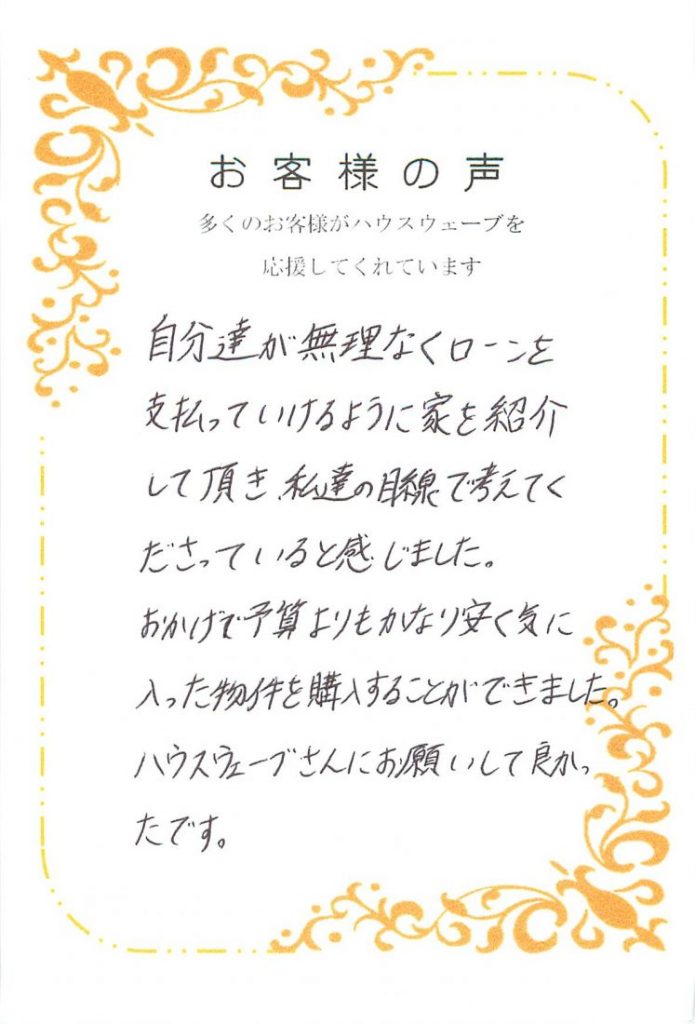 お客様の声
多くのお客様がハウスウェーブを
応援してくれています
自分達が無理なくローンを
支払っていけるように家を紹介
して頂き、私達の目線で考えてく
ださっていると感じました。
おかげで予算よりもかなり安く気に
入った物件を購入することができました。
ハウスウェーブさんにお願いして良かっ
たです。